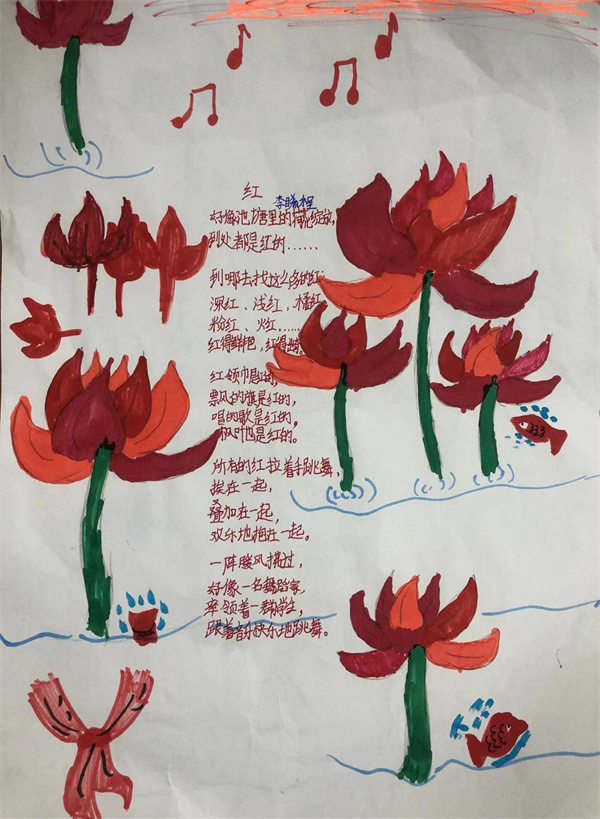 红
李晞桯
好像池塘里的荷花绽放,
到处都是红的……
到哪去找这么多的红:
深红、浅红、橘红
粉红、火红……
红得鲜艳,红得
红领巾是红的,
飘飘的旗是红的,
唱的歌是红的,
枫叶也是红的。
所有的红拉着手跳舞,
挨在一起,
叠加在一起,
欢乐地抱在一起。
一阵暖风拂过,
好像一名舞蹈家,
率领着一群学生,
跟着音乐快乐地跳舞。